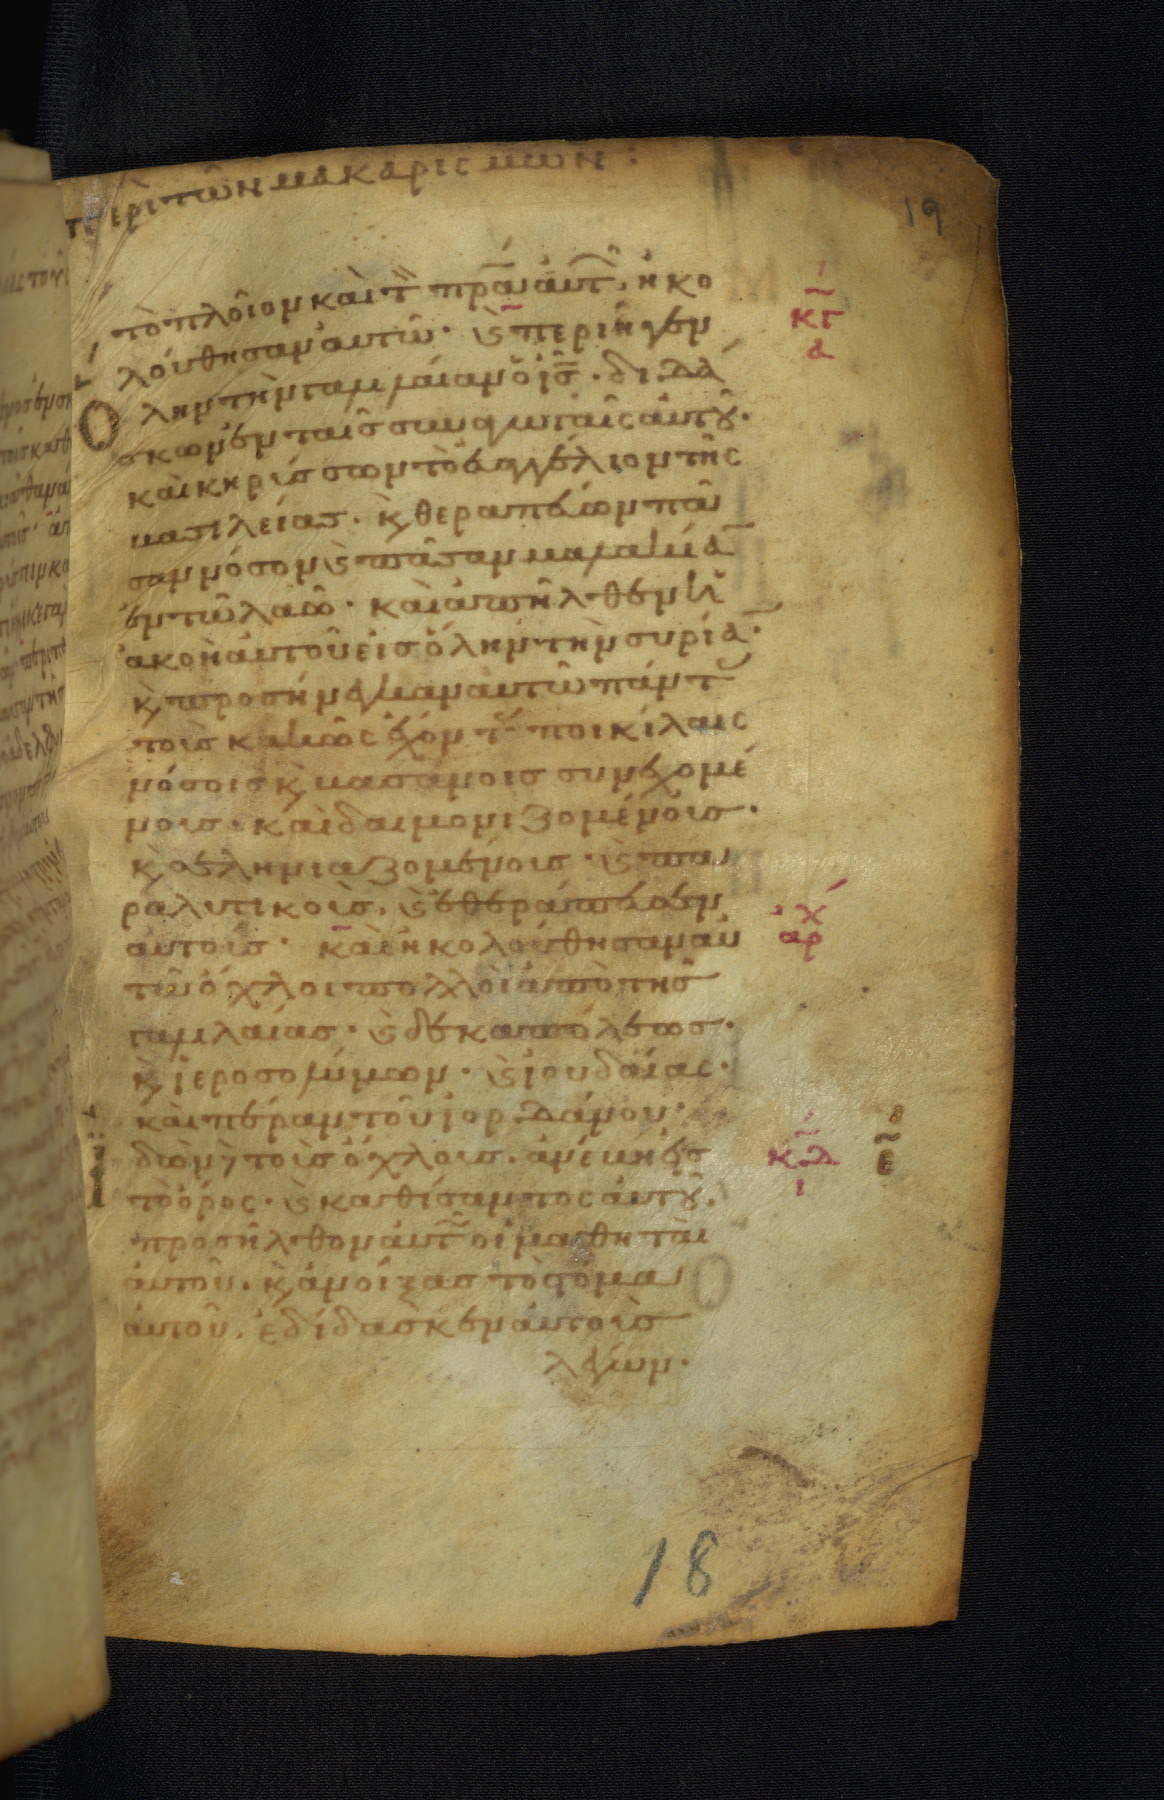 περὶ τῶν μακαρισμῶν :
19
τὸ πλοῖον καὶ τ πρα αὐτ, ἠκο
λούθησαν αὐτῶ· ϛ περιῆγεν
κγ
α
Ο λην τὴν γαλιλαίαν ὁ ις· διδά
σκων ἐν ταῖς συναγωγαῖς αὐτοῦ·
καὶ κηρίσσων τὸ εὐαγγέλιον τῆς
βασιλείας· κ θεραπεύων πᾶ
σαν νόσον ϛ πᾶσαν μαλακία
ἐν τῶ λαῶ· καὶ ἀπῆλθεν ἡ
ἀκοὴ αὐτοῦ εἰς ὅλην τὴν συρία·
κ προσήνεγκαν αὐτῶ πάντ
τοὺς κακῶς ἔχοντ ποικίλαις
νόσοις κ βασάνοις συνεχομέ
νοις· καὶ δαιμονιζομένοις·
κ σεληνιαζομένοις· ϛ πα
ραλυτικοὶς, ϛ ἐθεράπευσεν
αὐτούς· καὶ ἠκολούθησαν αὐ
αρχ
τῶ ὄχλοι πολλοὶ ἀπὸ τῆς
γαλιλαίας· ϛ δεκαπόλεως·
κ ἱεροσολύμων· ϛ ἰουδαίας·
καὶ πέραν τοῦ ἰορδάνου·
ἰδὼν τοὺς ὄχλοις· ἀνέβη εἰς
κδ
ι
ε
τὸ ὄρος· ϛ καθίσαντος αὐτοῦ·
προσῆλθον αὐτ οἱ μαθηταὶ
αὐτοῦ· κ ἀνοίξας τὸ στόμα
αὐτοῦ, ἐδίδασκεν αὐτοὺς
λέγων·
18